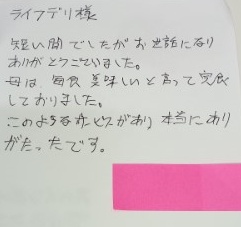 ライフデリ様
短い間でしたがお世話になり
ありがとうございました。
母は、毎食 美味しいと言って完食
しておりました。
このようなサービスがあり 本当にあり
がたかったです。